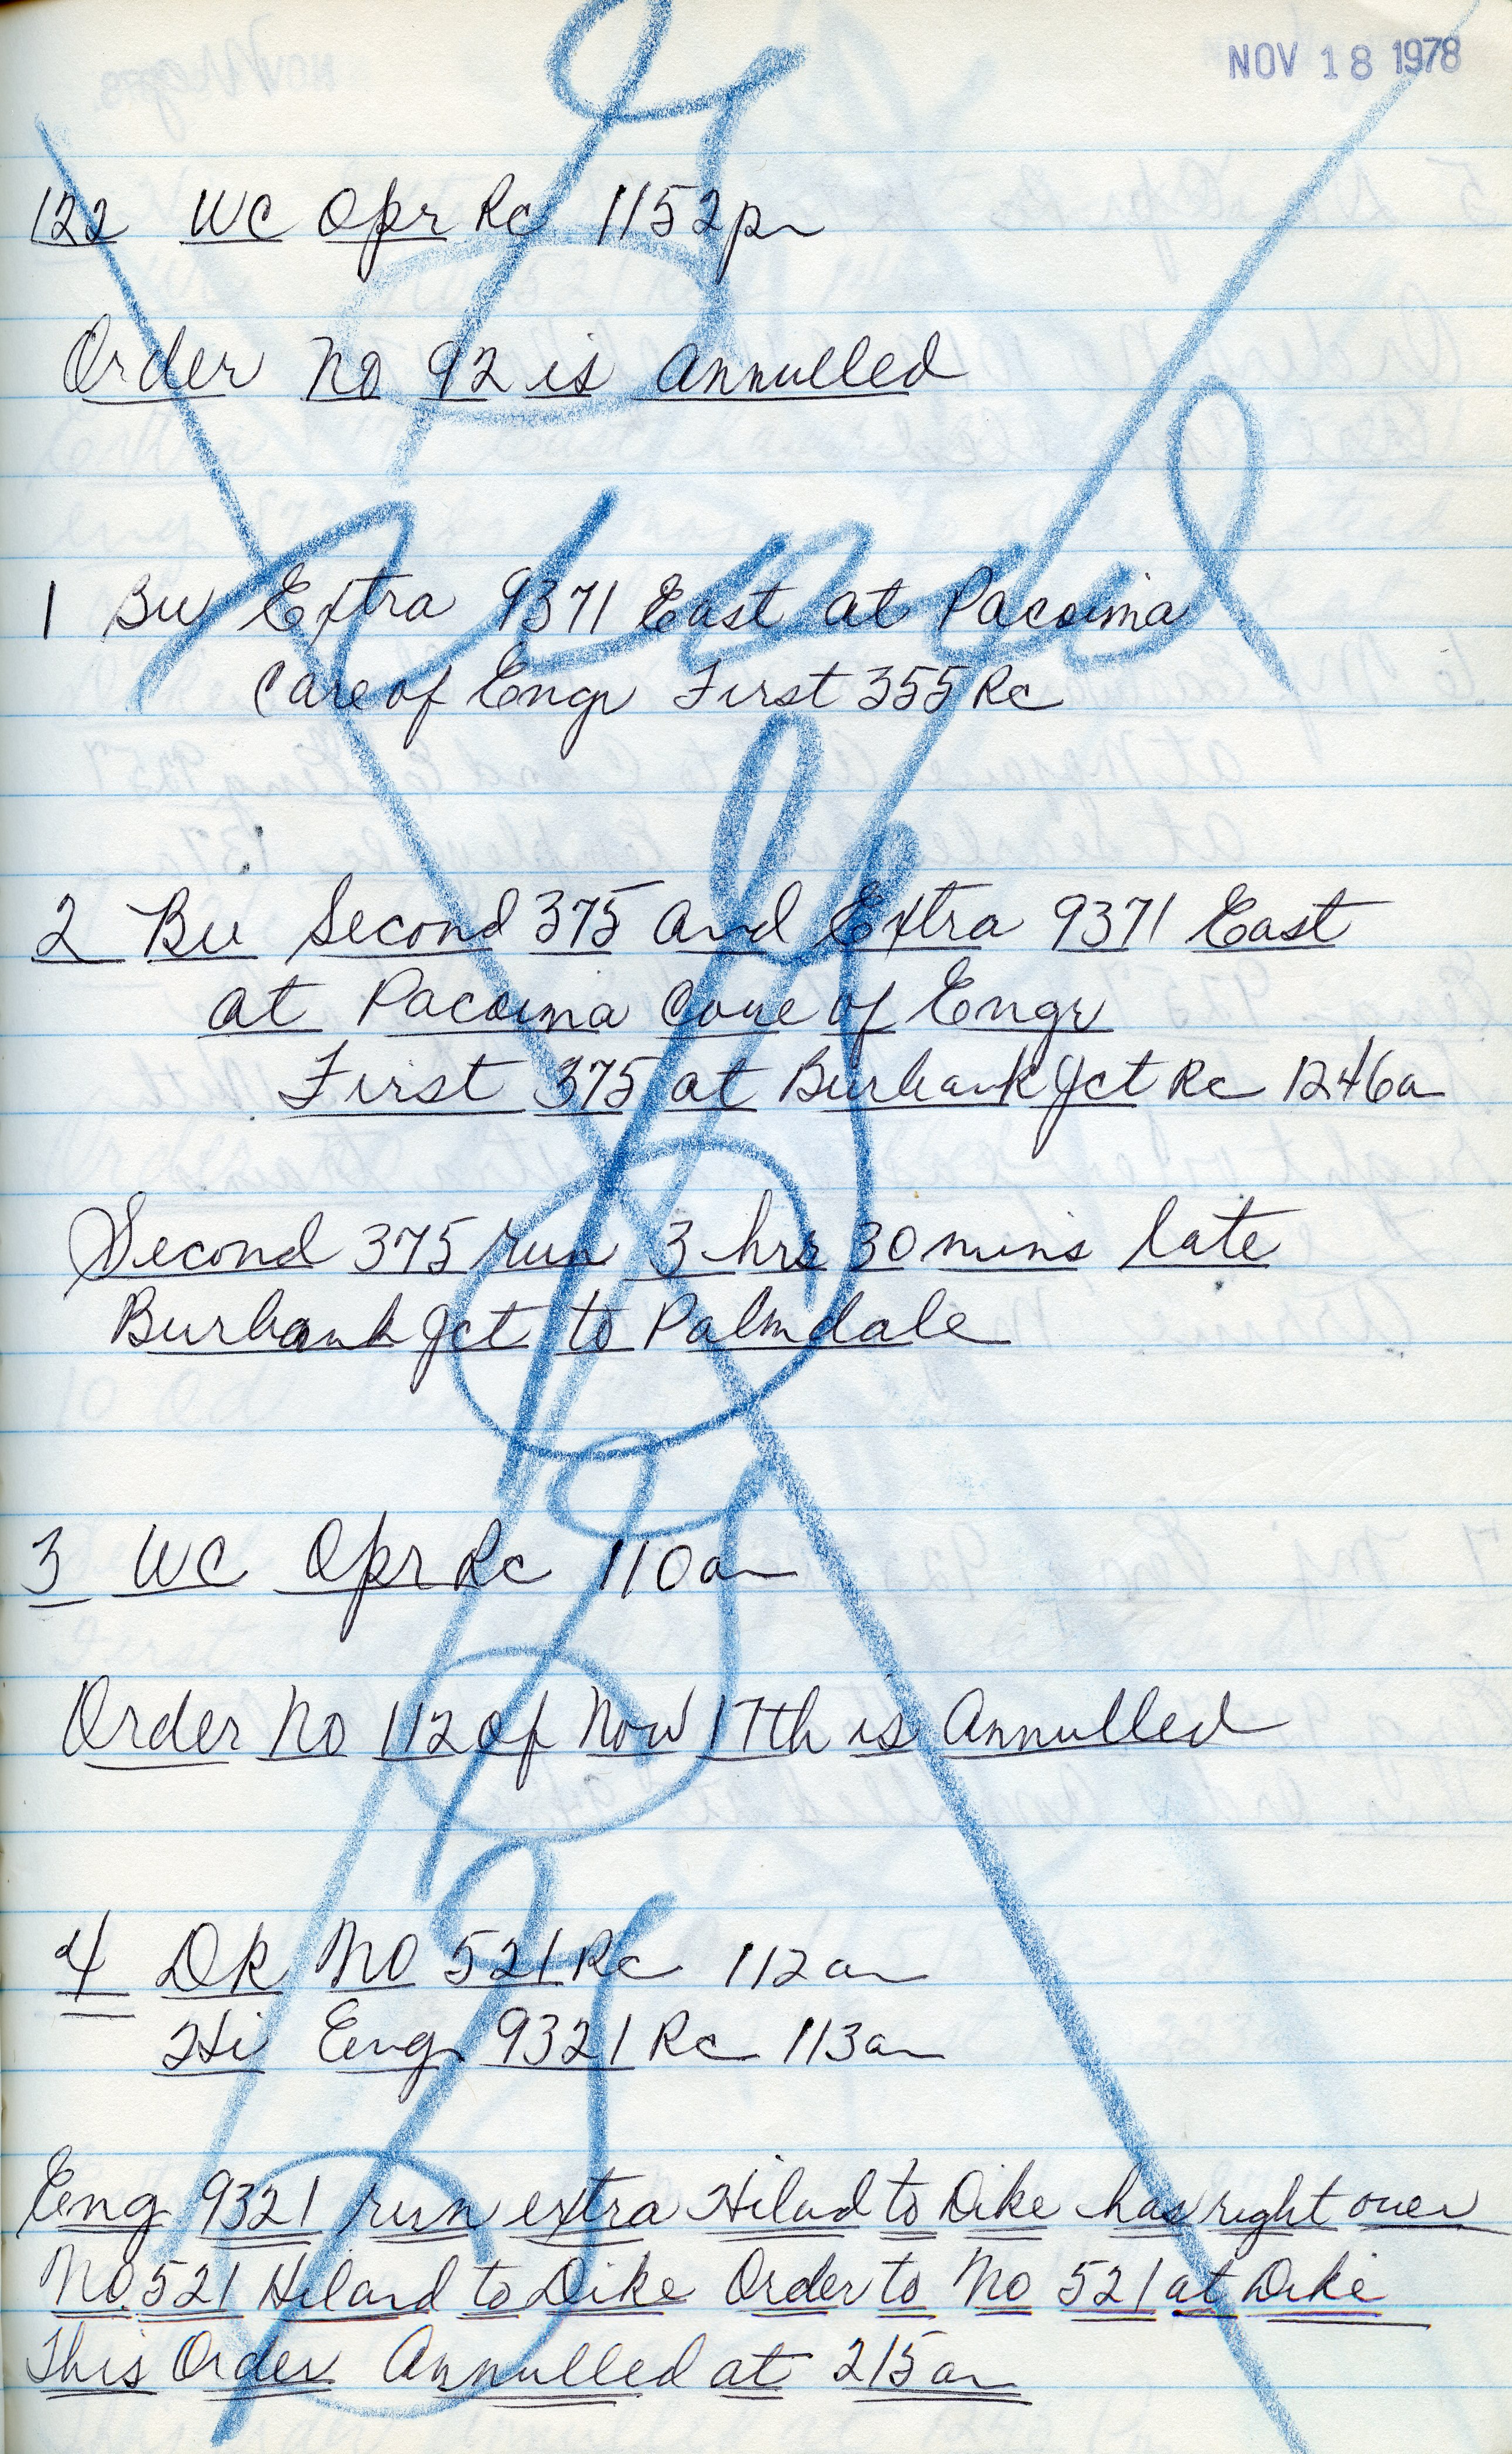 NOV 18 1978
122 WC Opr Rc 1152pm
Order No 92 is Annulled
1 Bu Extra 9371 East at Pacoima
Care of Engr First 355 Rc
2 Bu Second 375 and Extra 9371 East
at Pacoima Care of Engr
First 375 at Burbank Jct Rc 1246a
Second 375 run 3 hrs 30 mins late
Burbank Jct to Palmdale
3 WC Opr Rc 110am
Order No 112 of Nov 17th is Annulled
4 DK No 521 Rc 112am
Hi Eng 9321 Rc 113am
Eng 9321 run extra Hiland to Dike has right over
No. 521 Hiland to Dike Order to No 521 at Dike
This Order Annulled at 215am